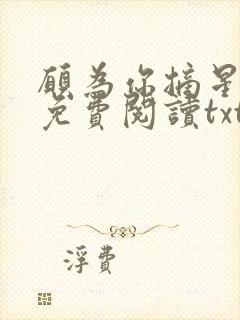 願為你摘星
免費閱讀txt
浮費